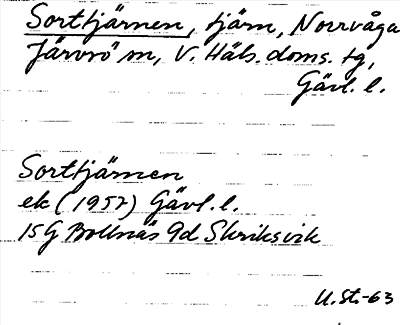 Sorttjärnen, tjärn, Norrvåga
Järvsö sn, V. Häls. doms. tg,
Gävl. l.
Sorttjärnen
ek (1957) Gävl. l.
15G Bollnäs 9d Skriksvik
U.St.-63